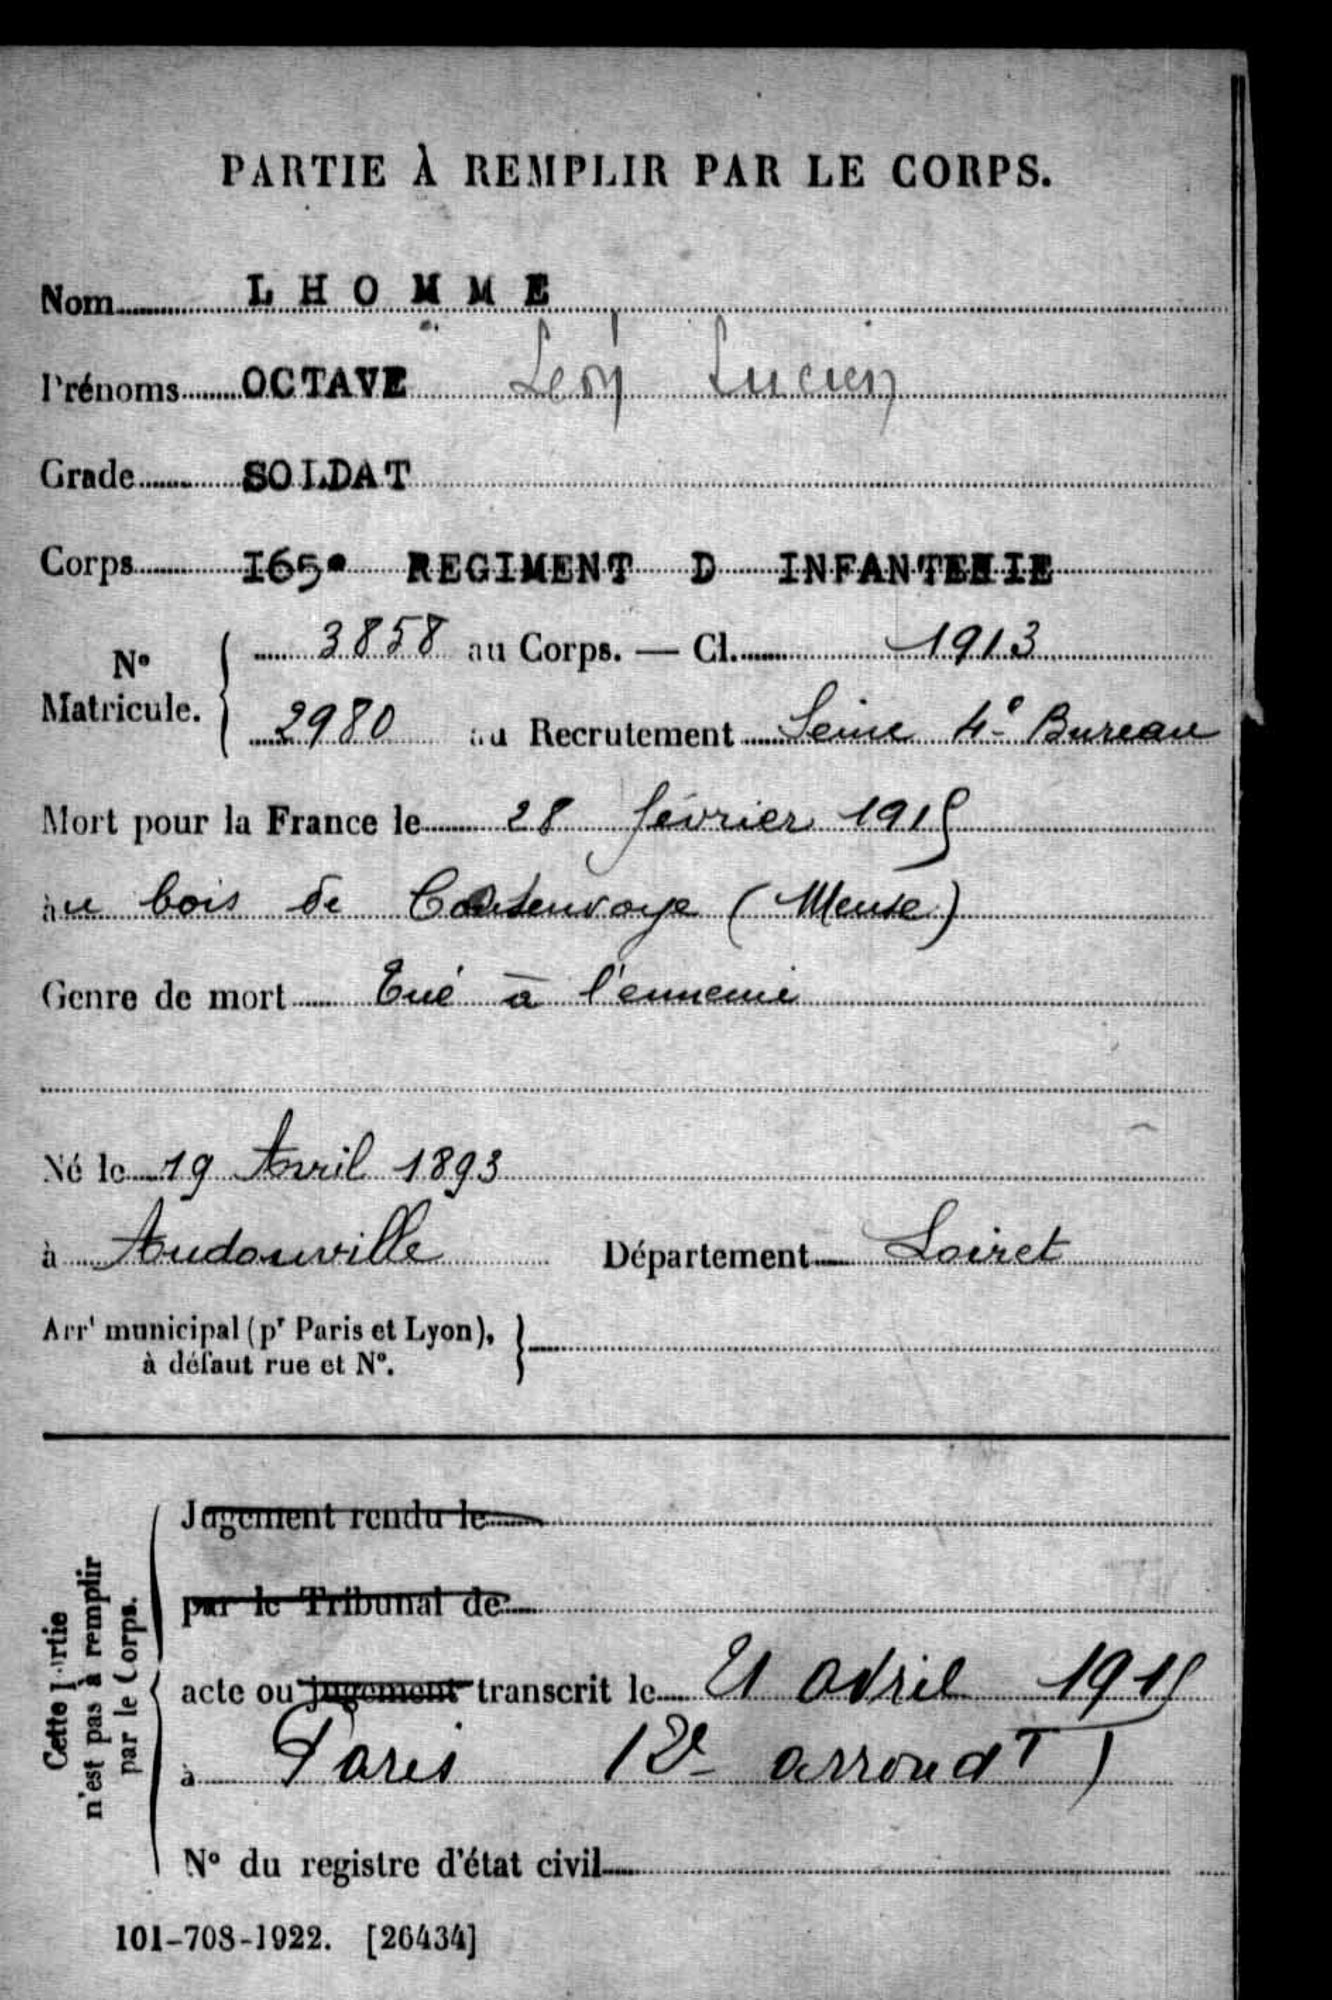 PARTIE À REMPLIR PAR LE CORPS.
Nom LHOMME
Prénoms OCTAVE Léon Lucien
Grade SOLDAT
Corps I65e REGIMENT D INFANTERIE
N° Matricule. 3858 au Corps. — Cl. 1913
2980 au Recrutement Seine 4e Bureau
Mort pour la France le 28 février 1915
au bois de Consenvoye (Meuse)
Genre de mort Tué à l'ennemi
Né le 19 Avril 1893
à Audouville Département Loiret
Arrt municipal (pr Paris et Lyon),
à défaut rue et N°.
Cette partie
n'est pas à remplir
par le Corps.
Jugement rendu le
par le Tribunal de
acte ou jugement transcrit le 21 avril 1915
à Paris 12e arrondt
N° du registre d'état civil
101-708-1922. [26434]